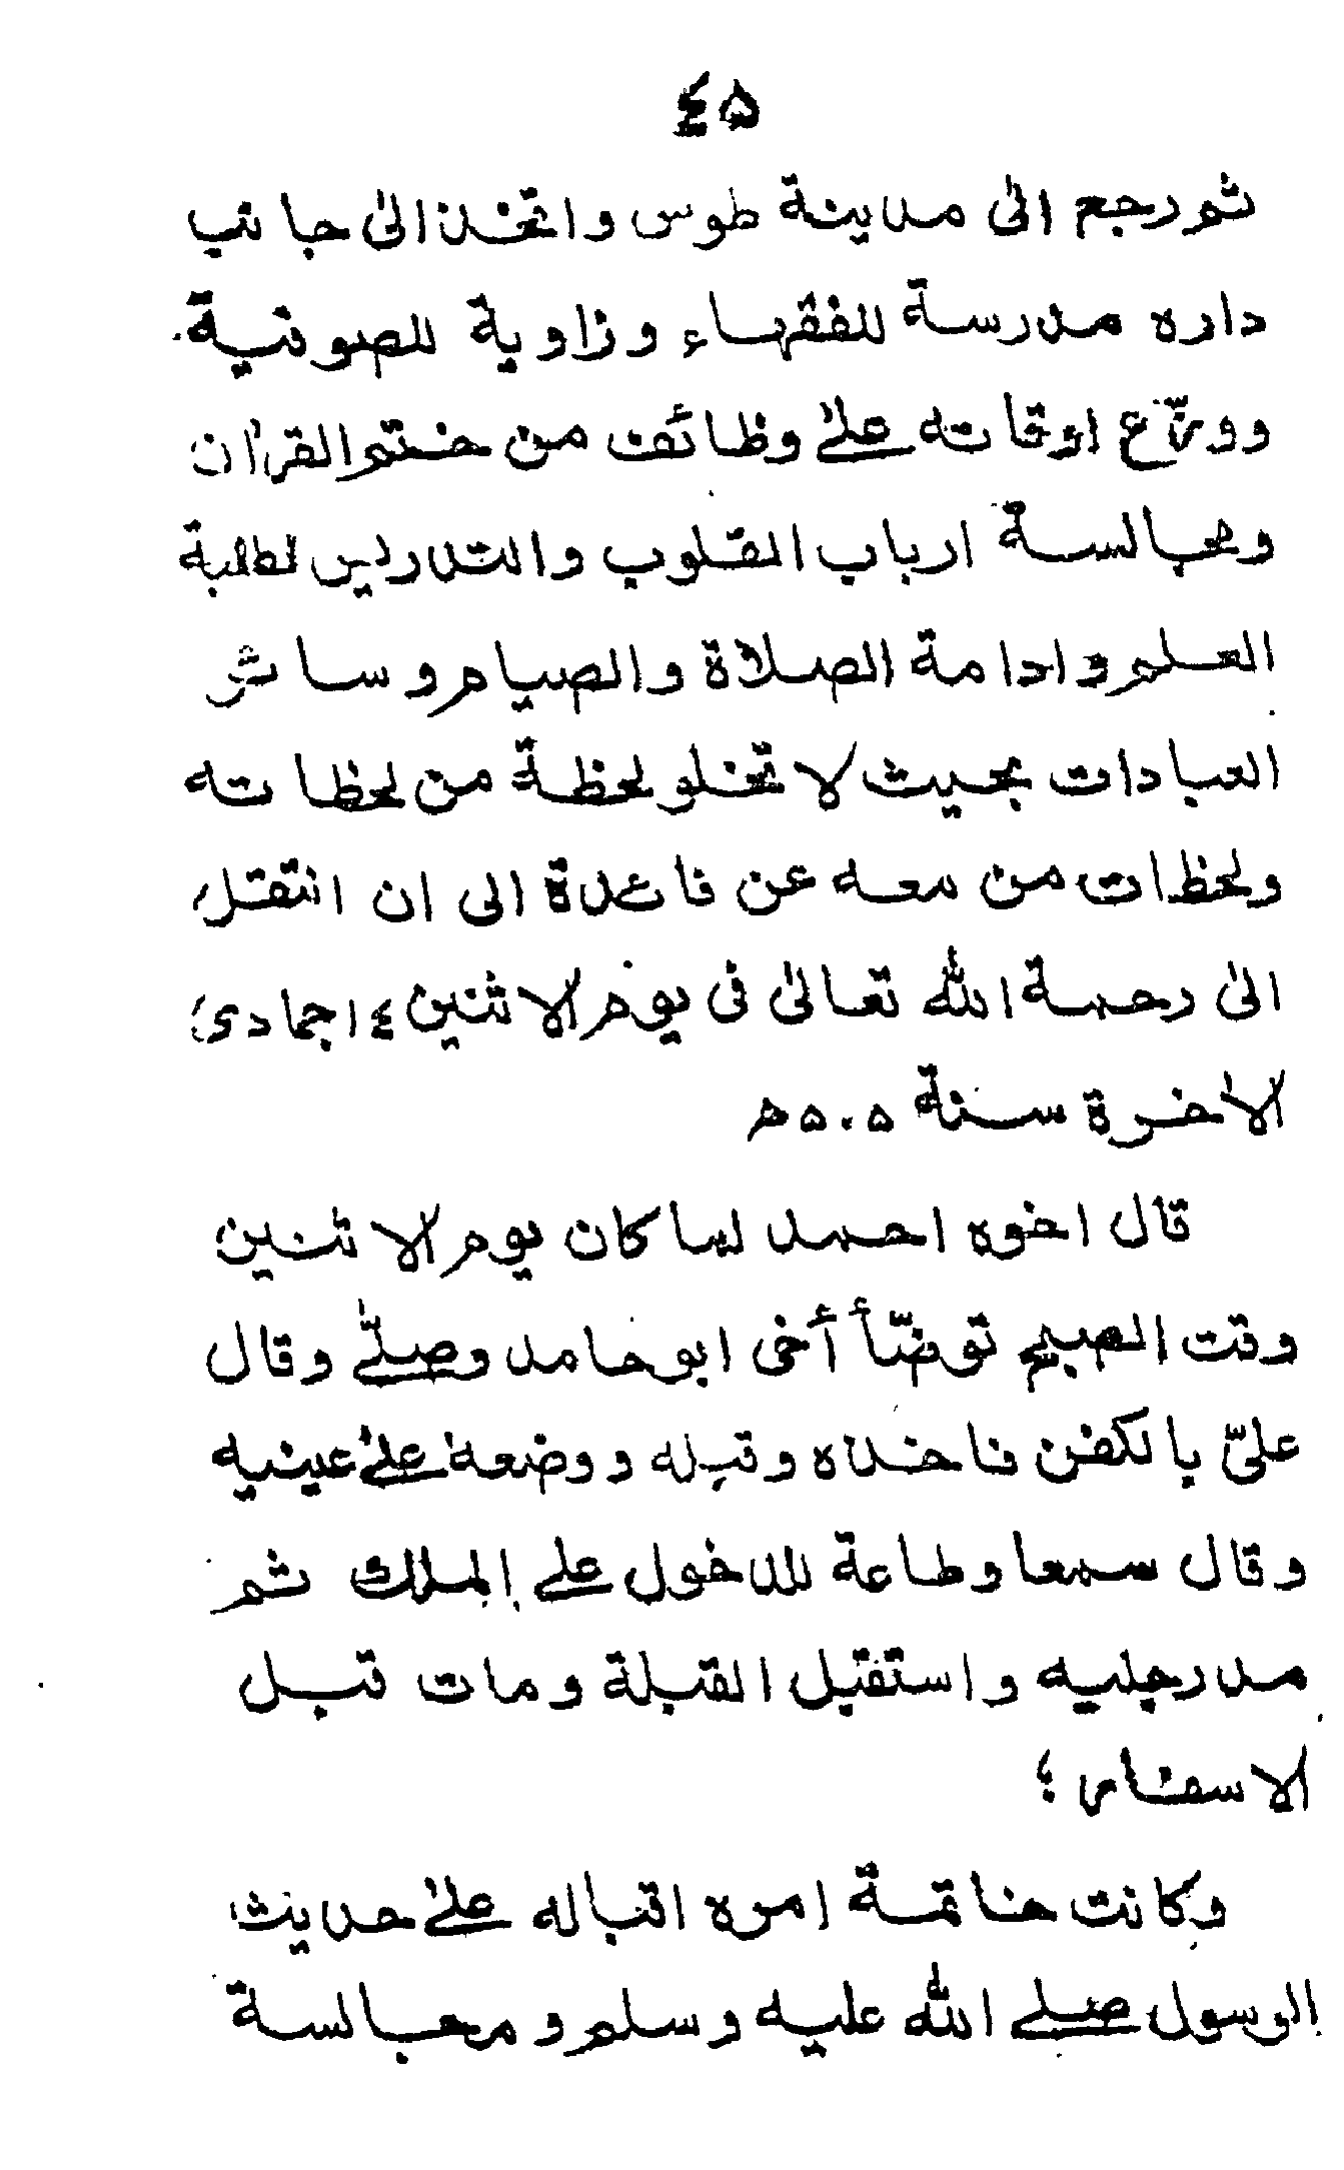 ٤٥
ثم رجع الىٰ مدينة طوس واتخذ الىٰ جانب
داره مدرسة للفقهاء وزاوية للصوفية
ووزّع اوقاته علىٰ وظائف من ختم القرآن
ومجالسة ارباب القلوب والتدريس لطلبة
العلم وادامة الصلاة والصيام وسائر
العبادات بحيث لا تخلو لحظة من لحظاته
ولحظات من معه عن فائدة الى ان انتقل
الىٰ رحمة الله تعالىٰ فى يوم الاثنين ١٤ جمادى
الاخرة سنة ٥٠٥ ھ
قال اخوه احمد لما كان يوم الاثنين
وقت الصبح توضّأ أخى ابو حامد وصلّى وقال
علىّ بالكفن فاخذه وقبله ووضعه علىٰ عينيه
وقال سمعا وطاعة للدخول على الملك ثم
مد رجليه واستقبل القبلة ومات قبل
الاسفار ؛
وكانت خاتمة امره اقباله علىٰ حديث
الرسول صلى الله عليه وسلم ومجالسة